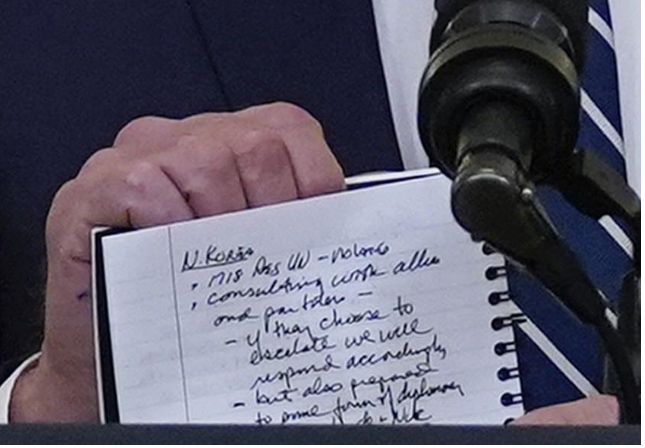 N. Korea
• 1718 Res UN - violated
• consulting with allies
and partners -
- if they choose to
escalate we will
respond accordingly
- but also prepared
to some form of diplomacy